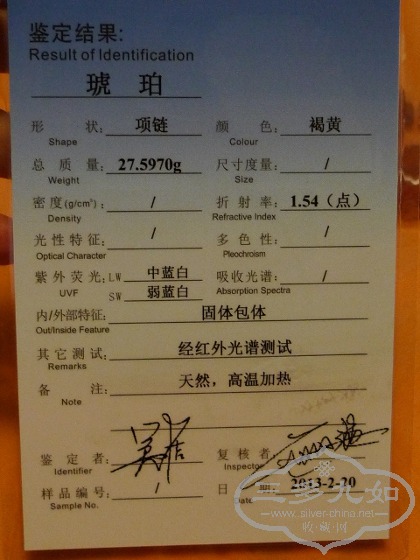 鉴定结果:
Result of Identification
琥珀
形状: 项链 颜色: 褐黄
Shape Colour
总质量: 27.5970g 尺寸度量: /
Weight Size
密度(g/cm³): / 折射率: 1.54（点）
Density Refractive Index
光性特征: / 多色性: /
Optical Character Pleochroism
紫外荧光: LW 中蓝白 吸收光谱: /
UVF SW 弱蓝白 Absorption Spectra
内/外部特征: 固体包体
Out/Inside Feature
其它测试: 经红外光谱测试
Remarks
备注: 天然，高温加热
Note
鉴定者: 复核者:
Identifier Inspector
样品编号: / 日期: 2013-2-20
Sample No. Date
三多九如
www.silver-china.net
收藏网